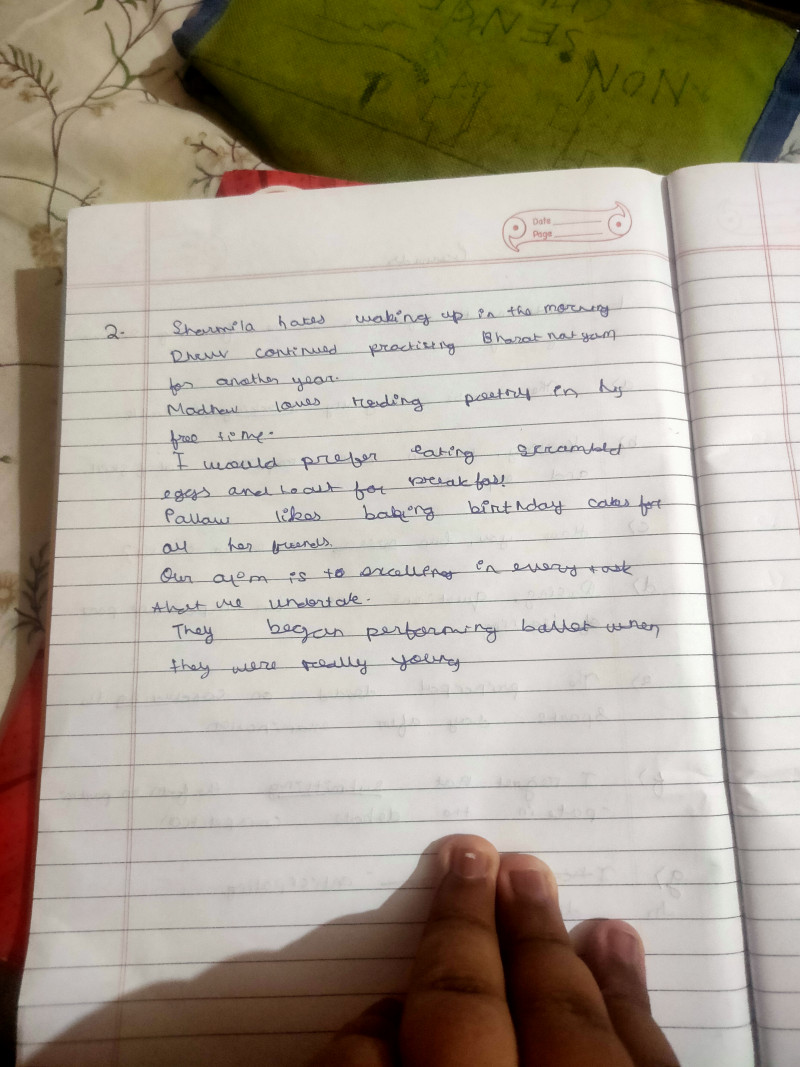 NON.SENSE
Date
Page
2. Sharmila hates waking up in the morning
Dhruv continued practising Bharatnatyam
for another year.
Madhav loves reading poetry in his
free time.
I would prefer eating scrambled
eggs and toast for breakfast
Pallavi likes baking birthday cakes for
all her friends.
Our aim is to excelling in every task
that we undertake.
They began performing ballet when
they were really young